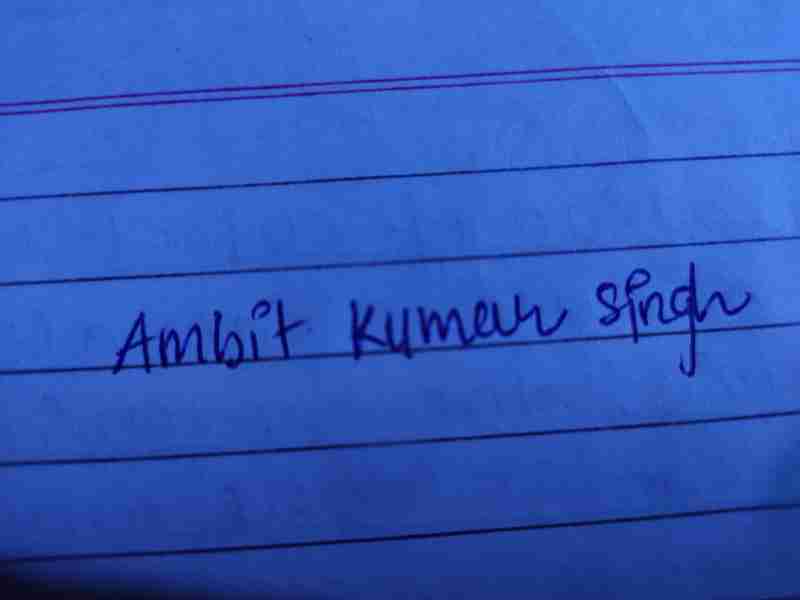 Ambit Kumar Singh